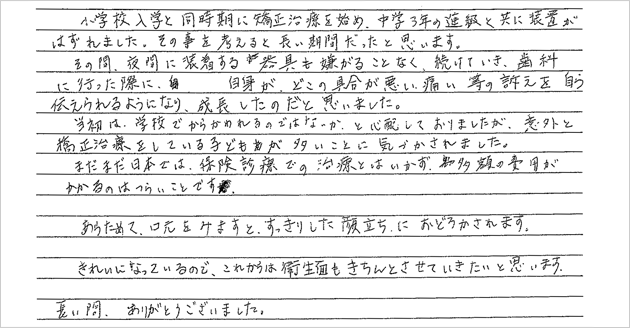 小学校入学と同時期に矯正治療を始め、中学3年の進級と共に装置が
はずれました。その事を考えると長い期間だったと思います。
その間、夜間に装着する器具も嫌がることなく、続けていき、歯科
に行った際に、自身が、どこの具合が悪い、痛い等の訴えを自ら
伝えられるようになり、成長したのだと思いました。
当初は、学校でからかわれるのではないか、と心配しておりましたが、意外と
矯正治療をしている子ども達が多いことに気づかされました。
まだまだ日本では、保険診療での治療とはいかず、多額の費用が
かかるのはつらいことです。
あらためて、口元をみますと、すっきりした顔立ちにおどろかされます。
きれいになっているので、これからは衛生面もきちんとさせていきたいと思います。
長い間、ありがとうございました。